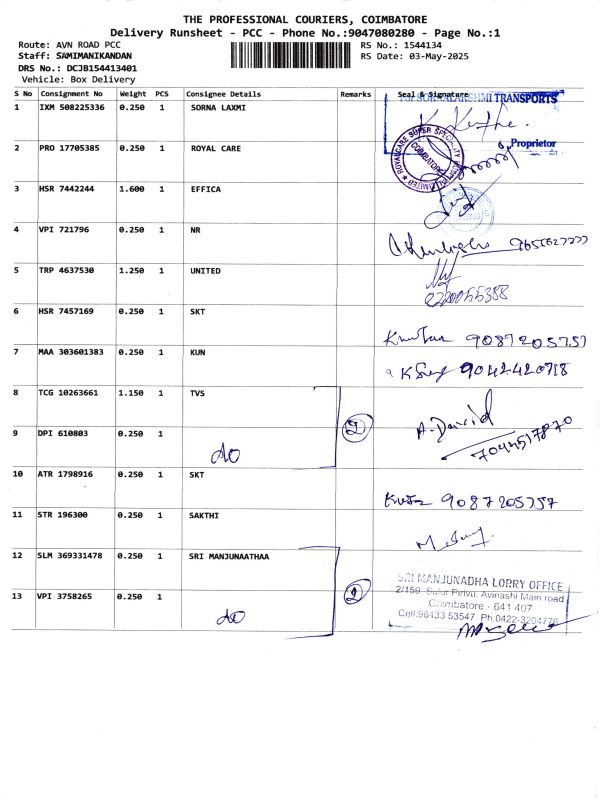 THE PROFESSIONAL COURIERS, COIMBATORE
Delivery Runsheet - PCC - Phone No.:9047080280 - Page No.:1
Route: AVN ROAD PCC
RS No.: 1544134
Staff: SAMIMANIKANDAN
RS Date: 03-May-2025
DRS No.: DCJB154413401
Vehicle: Box Delivery
S No Consignment No Weight PCS Consignee Details Remarks Seal & Signature
1 IXM 508225336 0.250 1 SORNA LAXMI
TRANSPORTS
Proprietor
2 PRO 17705385 0.250 1 ROYAL CARE
ROYALCARE SUPER SPECIALITY
COIMBATORE
3 HSR 7442244 1.600 1 EFFICA
4 VPI 721796 0.250 1 NR
5 TRP 4637530 1.250 1 UNITED
6 HSR 7457169 0.250 1 SKT
9087205757
7 MAA 303601383 0.250 1 KUN
9042420718
8 TCG 10263661 1.150 1 TVS
2
A. David
7044517870
9 DPI 610803 0.250 1
do
10 ATR 1798916 0.250 1 SKT
9087205757
11 STR 196300 0.250 1 SAKTHI
12 SLM 369331478 0.250 1 SRI MANJUNAATHAA
2
SRI MANJUNADHA LORRY OFFICE
2/159 Sulur Pirivu, Avinashi Main road
Coimbatore - 641 407
Cell.98433 53547 Ph.0422-3204776
13 VPI 3758265 0.250 1
do